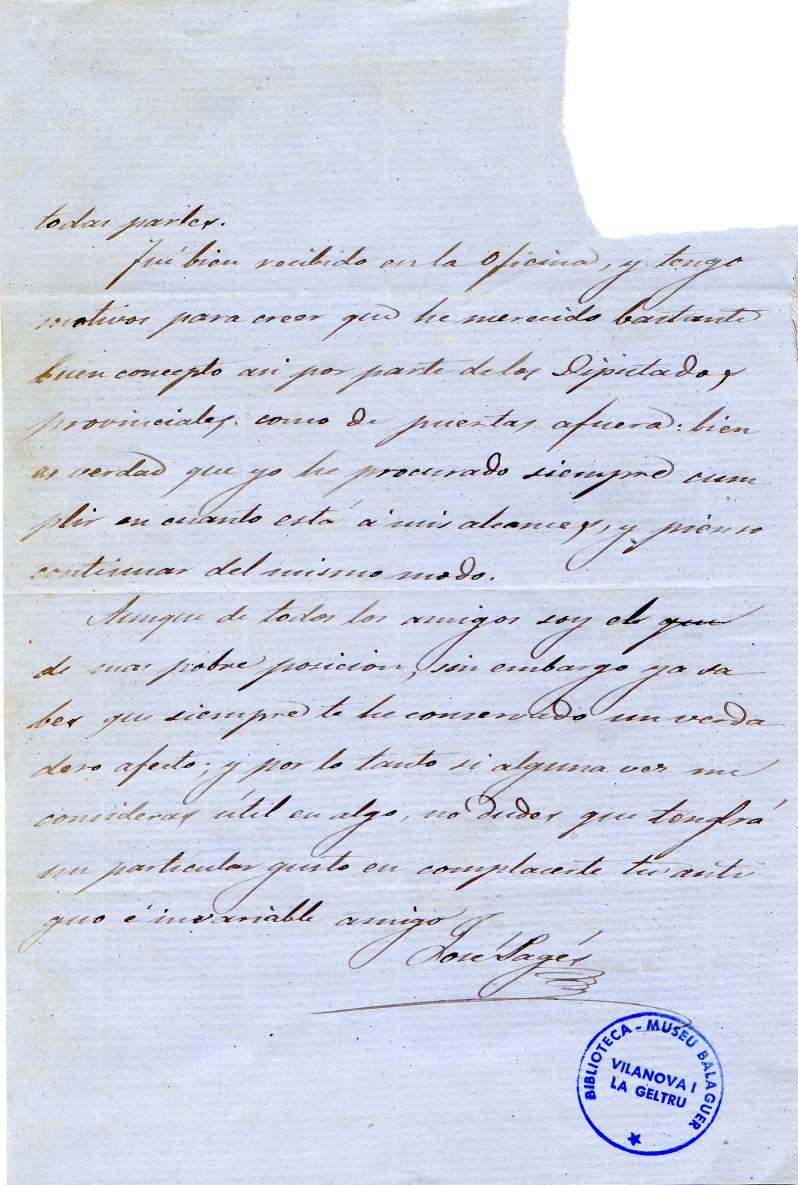 todas partes.
Fuí bien recibido en la Oficina, y tengo
motivos para creer que he merecido bastante
buen concepto asi por parte de los Diputados
provinciales. como de puertas afuera: bien
es verdad que yo he procurado siempre cum
plir en cuanto está á mis alcances, y pienso
continuar del mismo modo.
Aunque de todos los amigos soy el que
de mas pobre posicion, sin embargo ya sa
bes que siempre te he conservado un verda
dero afecto; y por lo tanto si alguna vez me
consideras útil en algo, no dudes que tendrá
un particular gusto en complacerte tu anti
guo é invariable amigo
José Pagés
BIBLIOTECA - MUSEU BALAGUER
VILANOVA I
LA GELTRU